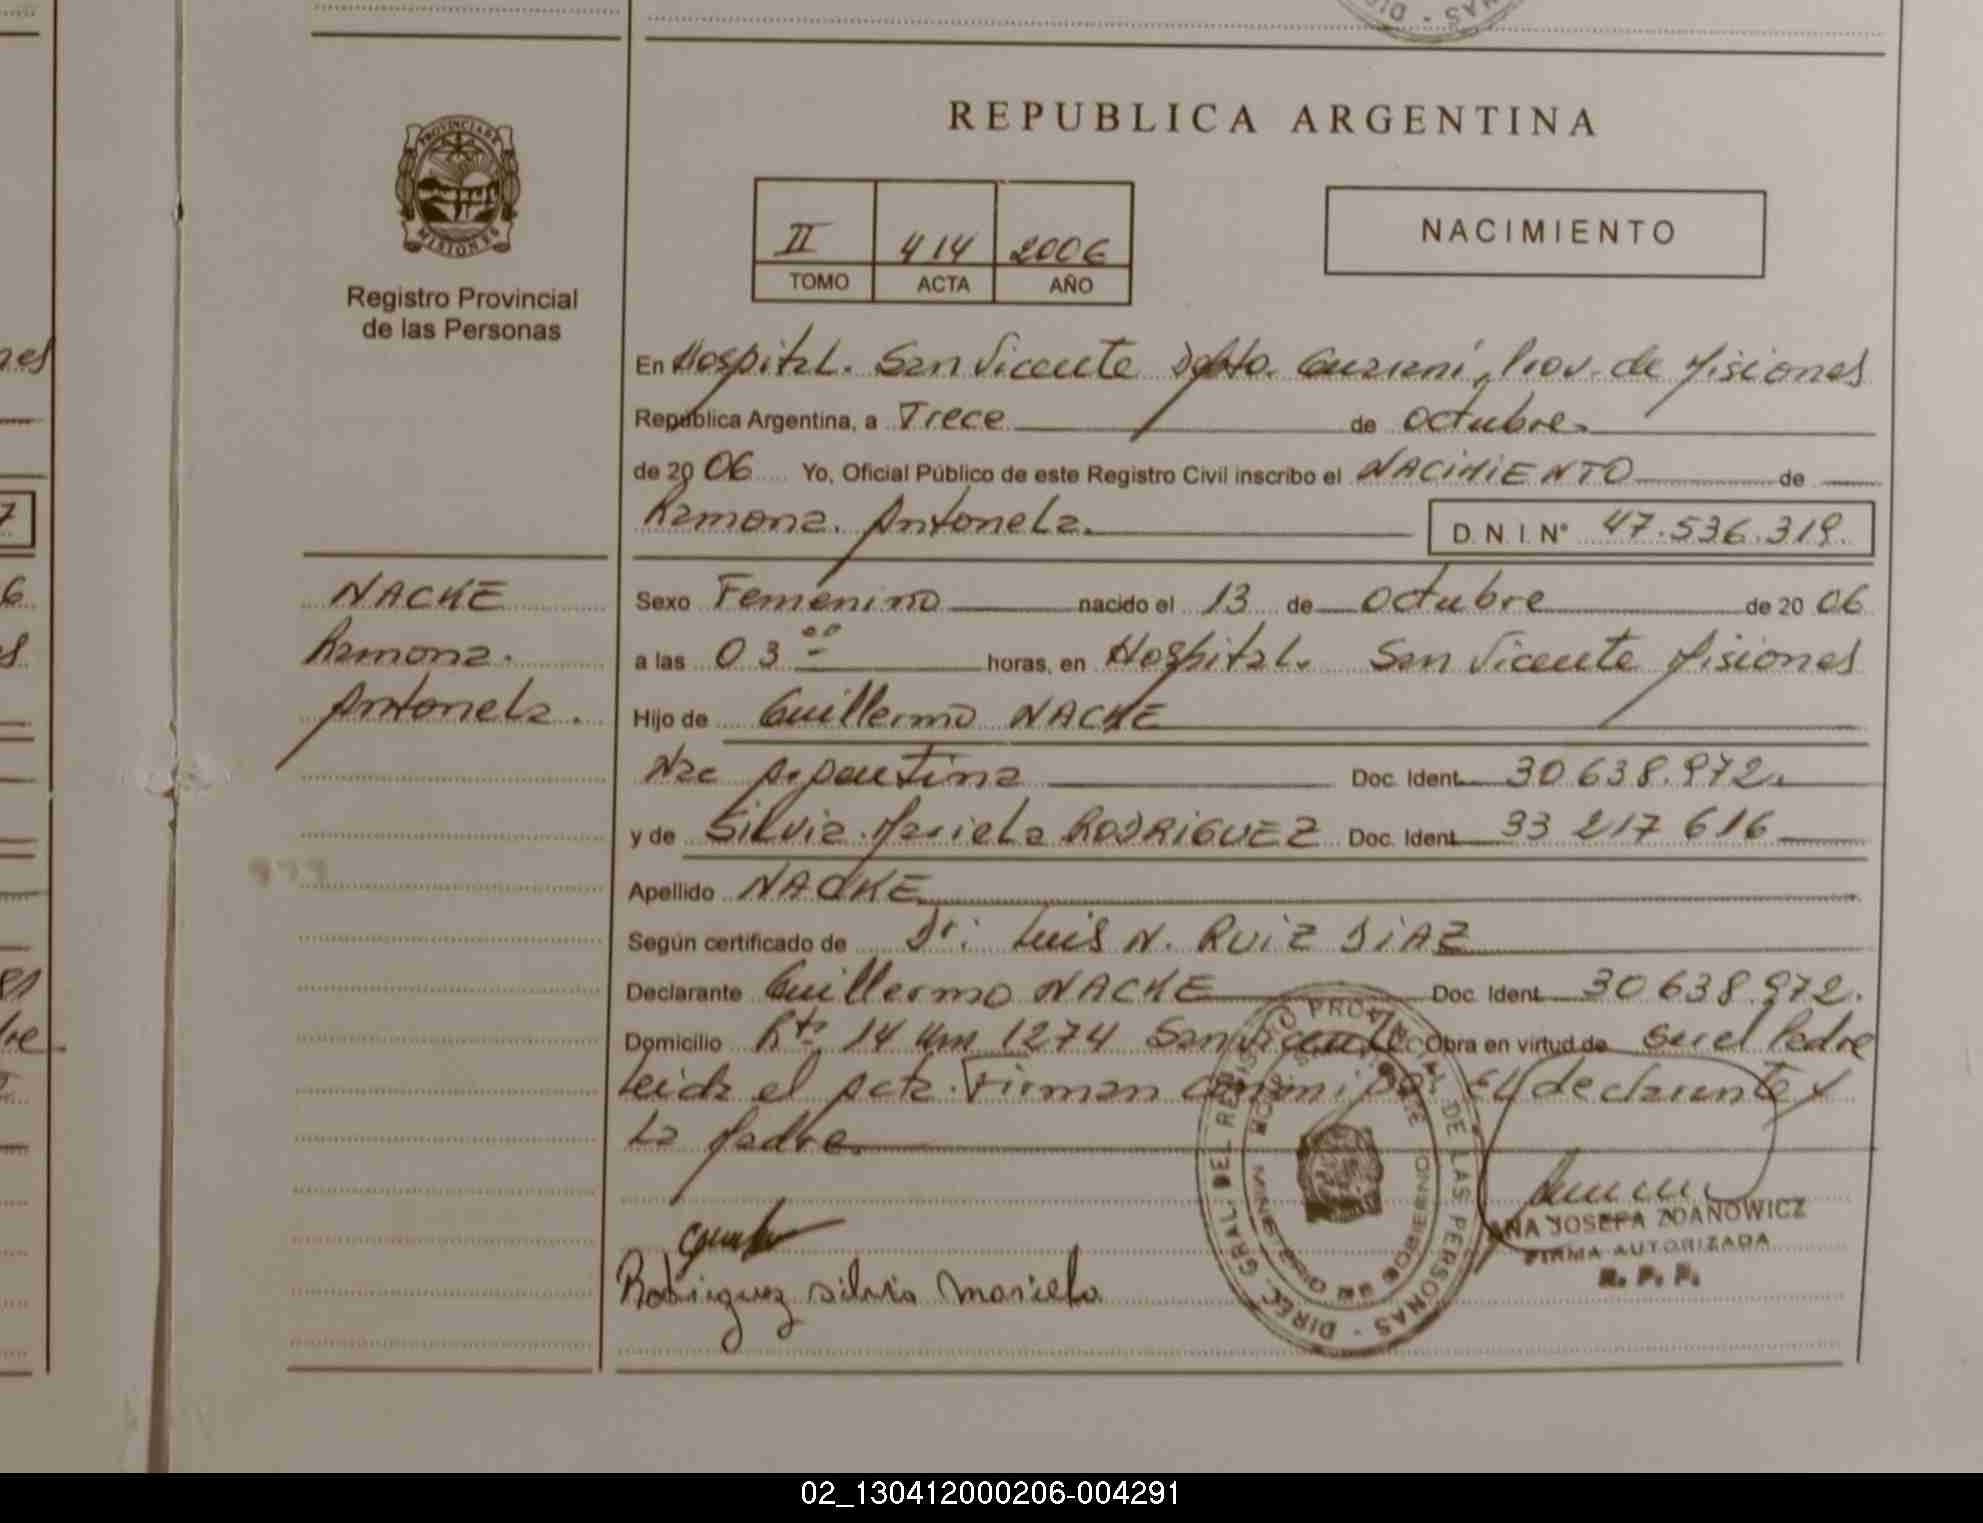 REPUBLICA ARGENTINA
PROVINCIA DE
MISIONES
Registro Provincial
de las Personas
II 414 2006
TOMO ACTA AÑO
NACIMIENTO
En Hospital. San Vicente Dpto. Guaraní, Prov. de Misiones
República Argentina, a Trece de octubre
de 20 06 Yo, Oficial Público de este Registro Civil inscribo el NACIMIENTO de
Ramona. Antonela.
D. N. I. N° 47.536.319.
NACKE
Ramona.
Antonela.
Sexo Femenino nacido el 13 de octubre de 20 06
a las 03 00 horas, en Hospital. San Vicente Misiones
Hijo de Guillermo NACKE
Nac Argentina Doc. Ident. 30 638.972.
y de Silvia. Mariela RODRIGUEZ Doc. Ident. 33 217 616
Apellido NACKE
Según certificado de Dr: Luis N. RUIZ DIAZ
Declarante Guillermo NACKE Doc. Ident. 30 638.972.
Domicilio Rta 14 Km 1274 San Vicente Obra en virtud de ser el Padre
Leida el Acta. Firman conmigo: El declarante y
La Madre.
Rodriguez silvia Mariela
DIREC. GRAL. DEL REGISTRO PROVINCIAL DE LAS PERSONAS
MINISTERIO DE GOBIERNO
ANA JOSEFA ZDANOWICZ
FIRMA AUTORIZADA
R. P. P.
02_130412000206-004291